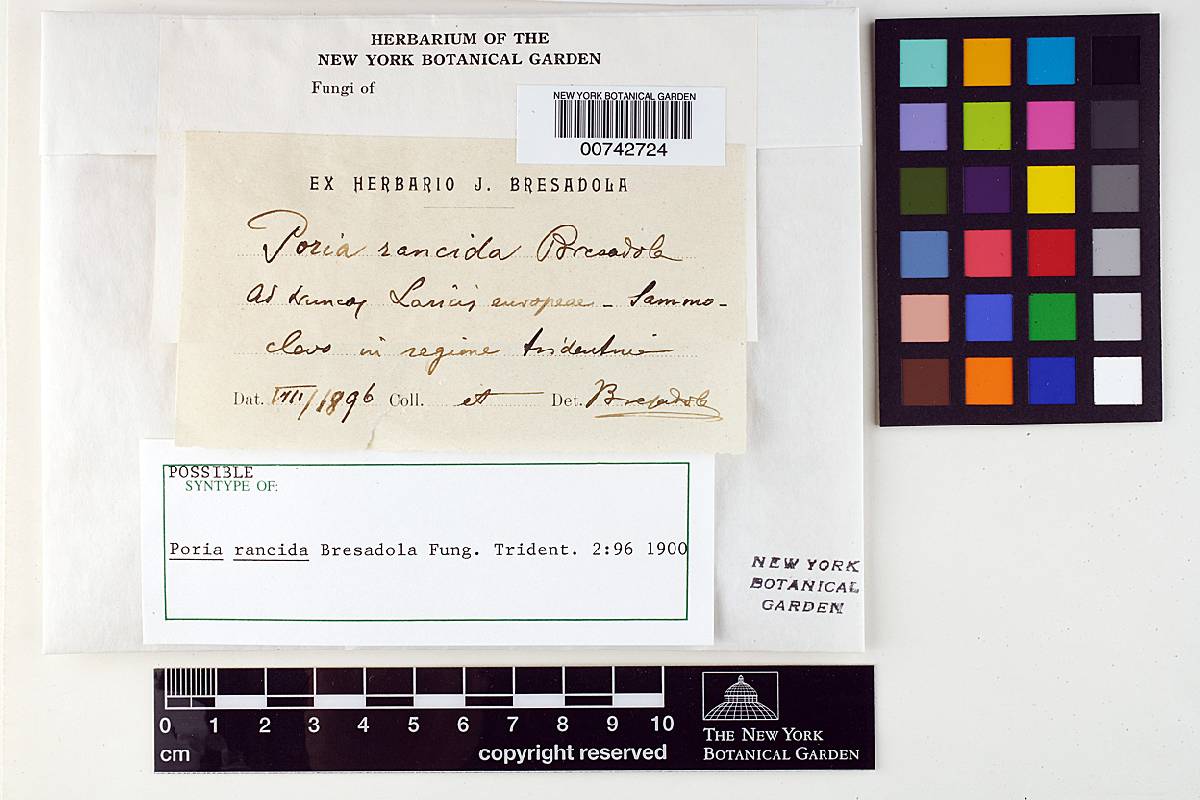 HERBARIUM OF THE
NEW YORK BOTANICAL GARDEN
Fungi of
NEW YORK BOTANICAL GARDEN
00742724
EX HERBARIO J. BRESADOLA
Poria rancida Bresadola
Ad truncos Laricis europeae - Sammo-
clevo in regione tridentina
Dat. VIII/1896 Coll. et Det. Bresadola
POSSIBLE
SYNTYPE OF:
Poria rancida Bresadola Fung. Trident. 2:96 1900
NEW YORK
BOTANICAL
GARDEN
0 1 2 3 4 5 6 7 8 9 10
cm copyright reserved
THE NEW YORK
BOTANICAL GARDEN